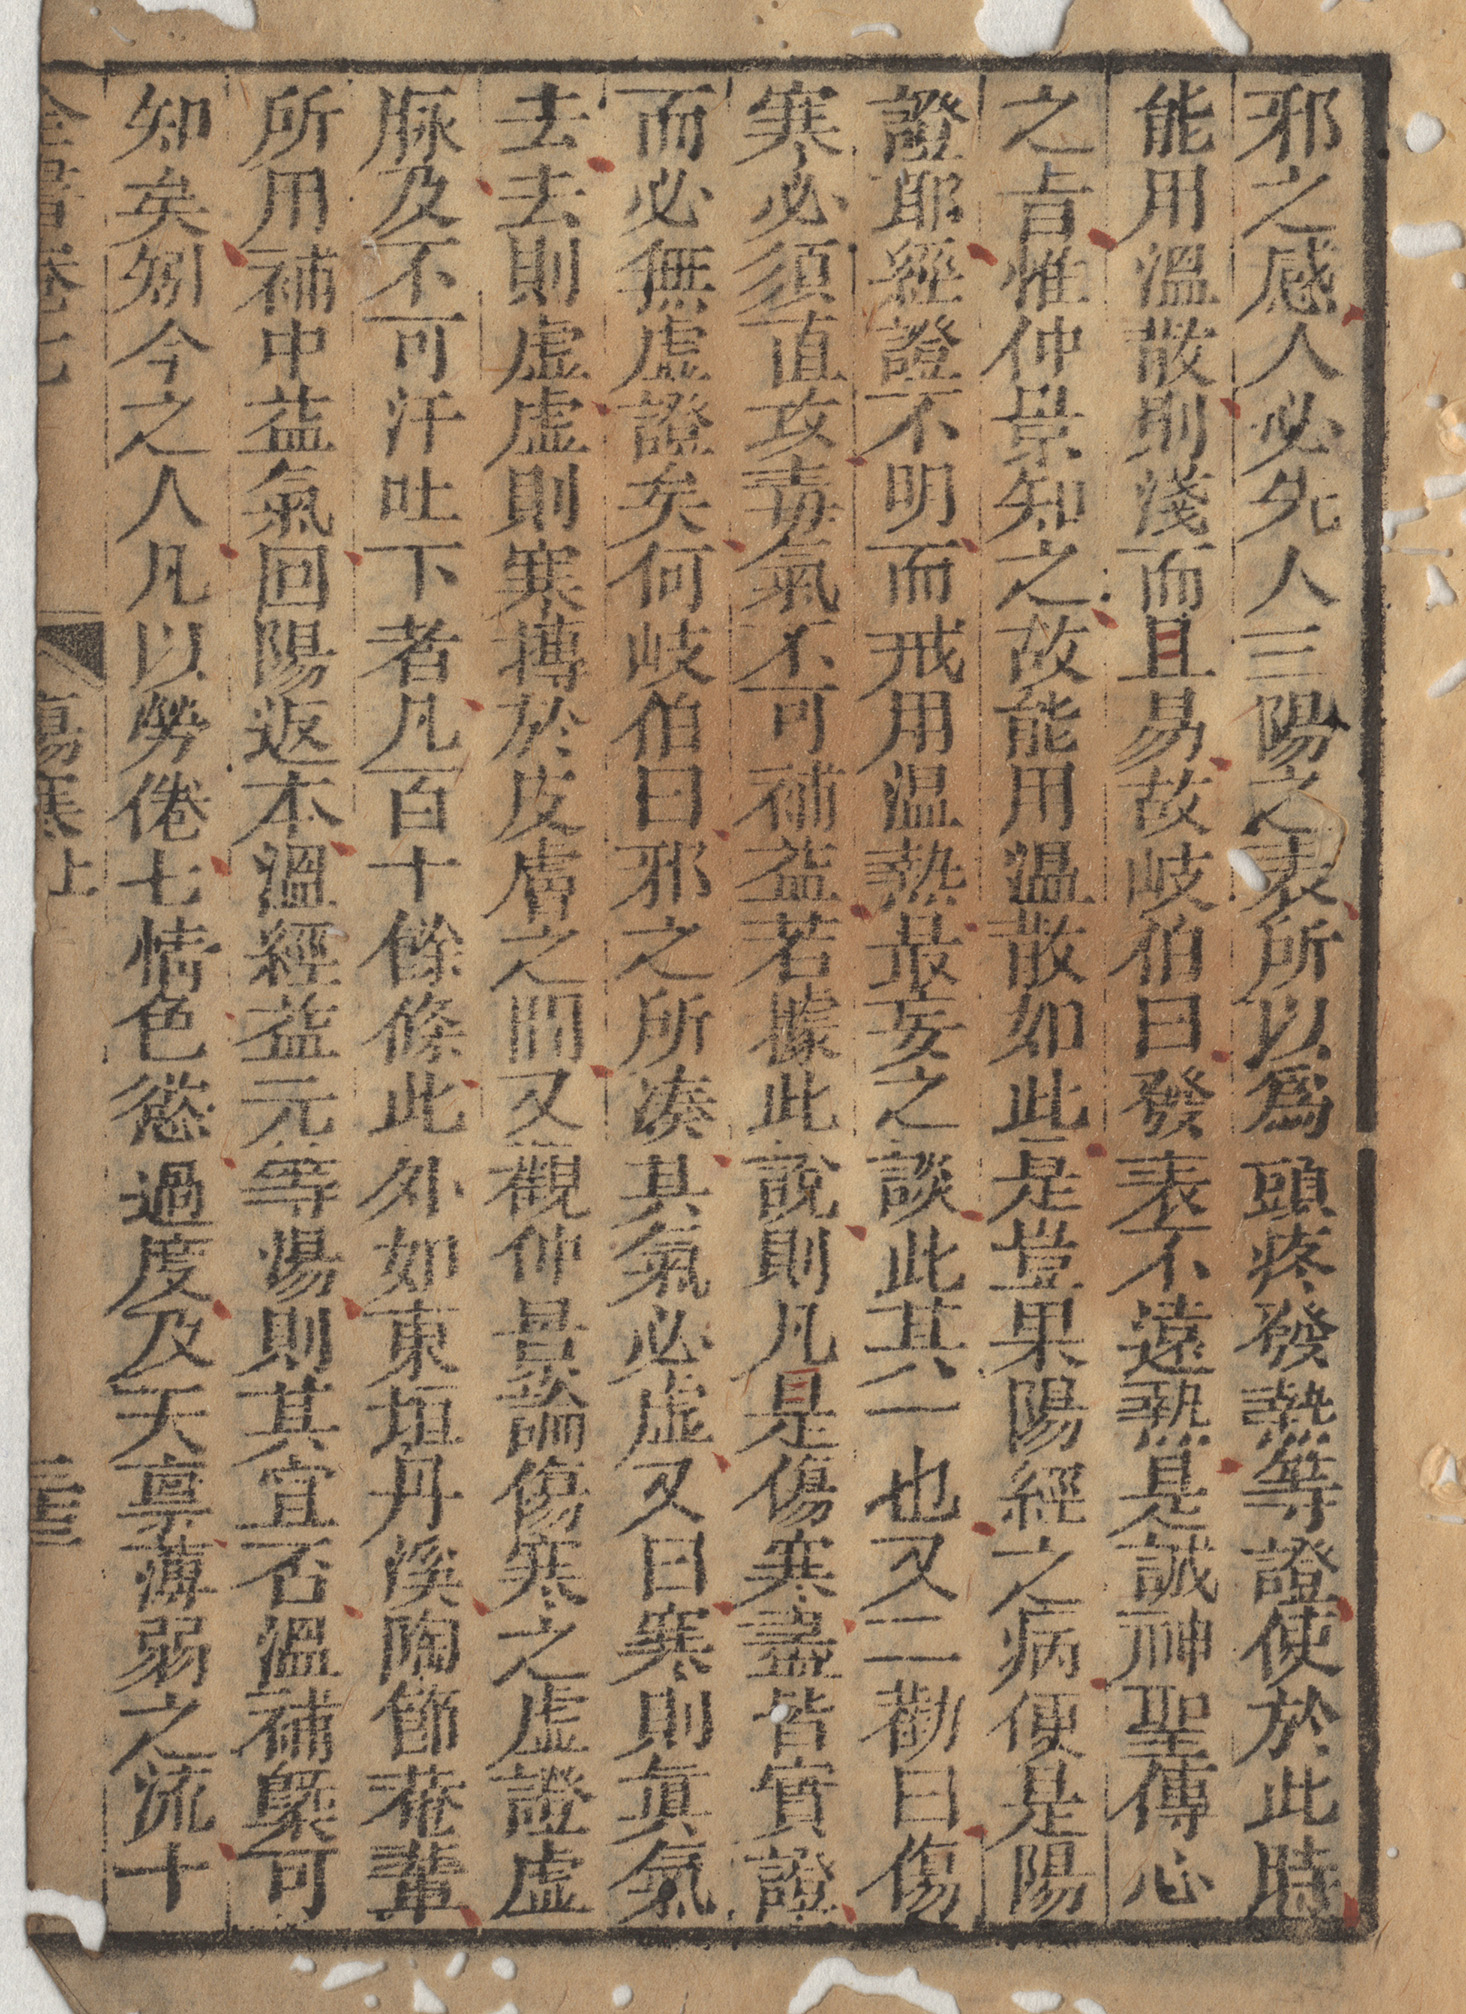 邪之感人必先人三陽之表所以爲頭疼發熱等證使於此時
能用溫散則淺而且易故岐伯曰發表不遠熱是誠神聖傳心
之旨惟仲景知之故能用溫散如此是豈果陽經之病便是陽
證耶經證不明而戒用温熱最妄之談此其一也又二勸曰傷
寒必須直攻毒氣不可補益若據此說則凡是傷寒盡皆實證
而必無虛證矣何岐伯曰邪之所湊其氣必虛又曰寒則眞氣
去去則虛虛則寒摶於皮膚之間又觀仲景論傷寒之虛證虛
脉及不可汗吐下者凡百十餘條此外如東垣丹溪陶節菴輩
所用補中益氣回陽返本溫經益元等湯則其宜否溫補槩可
知矣矧今之人凡以勞倦七情色慾過度及天稟薄弱之流十
全書卷七 傷寒上 三